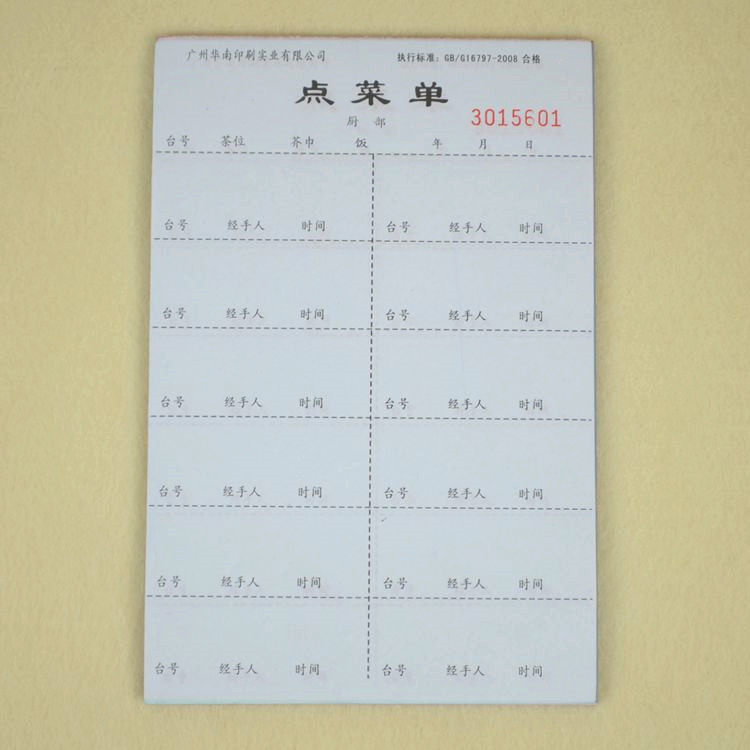 广州华南印刷实业有限公司 执行标准：GB/G16797-2008 合格
点菜单
厨 部 3015601
台号 茶位 芥巾 饭 年 月 日
台号 经手人 时间 台号 经手人 时间
台号 经手人 时间 台号 经手人 时间
台号 经手人 时间 台号 经手人 时间
台号 经手人 时间 台号 经手人 时间
台号 经手人 时间 台号 经手人 时间
台号 经手人 时间 台号 经手人 时间